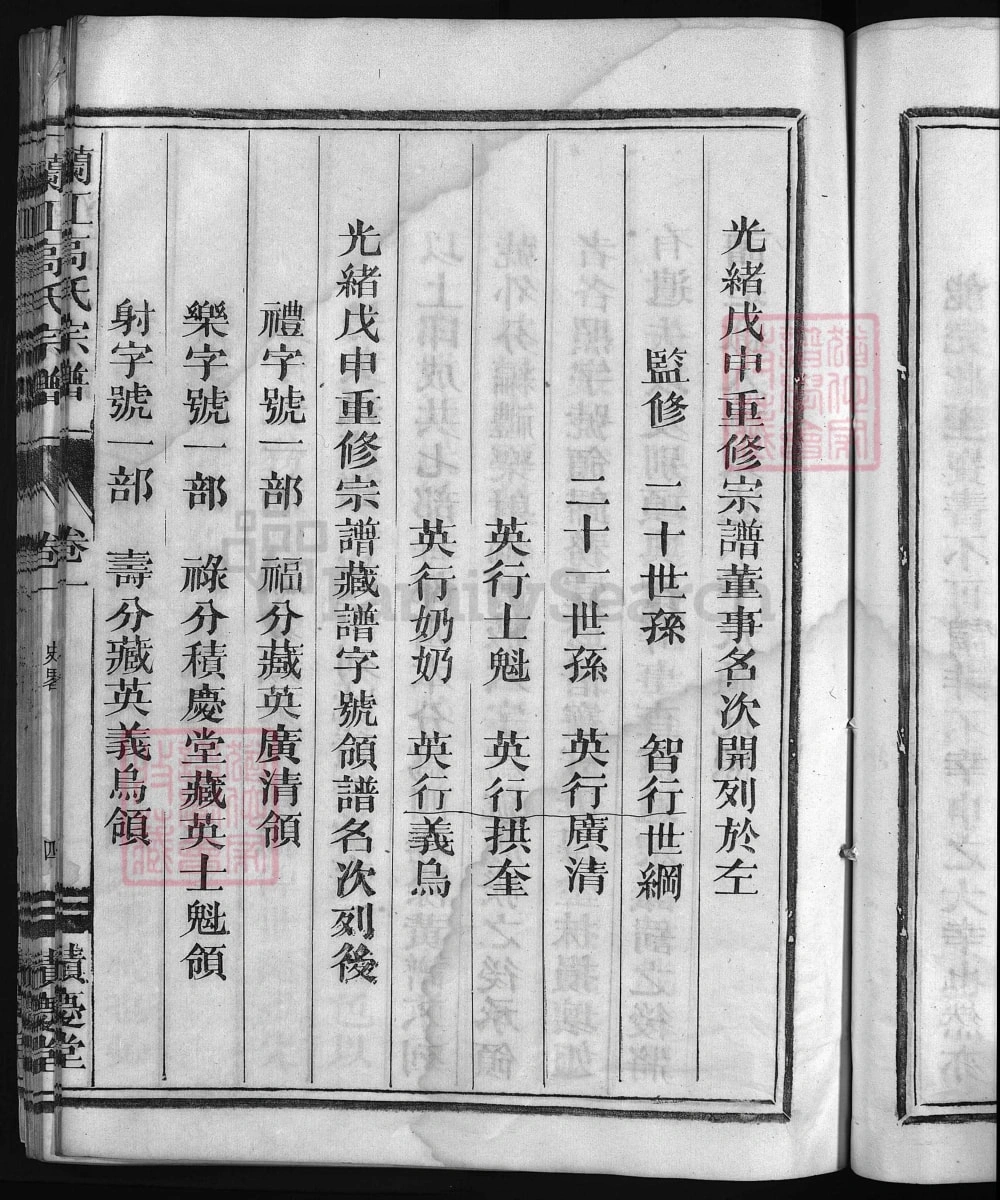 光緒戊申重修宗譜董事名次開列於左
監修 二十世孫 智行世綱
二十一世孫 英行廣清
英行士魁 英行拱奎
英行奶奶 英行義烏
光緒戊申重修宗譜藏譜字號領譜名次列後
禮字號一部 福分藏英廣清領
樂字號一部 祿分積慶堂藏英士魁領
射字號一部 壽分藏英義烏領
蘭江高氏宗譜 卷一 史畧 四 積慶堂
FamilySearch